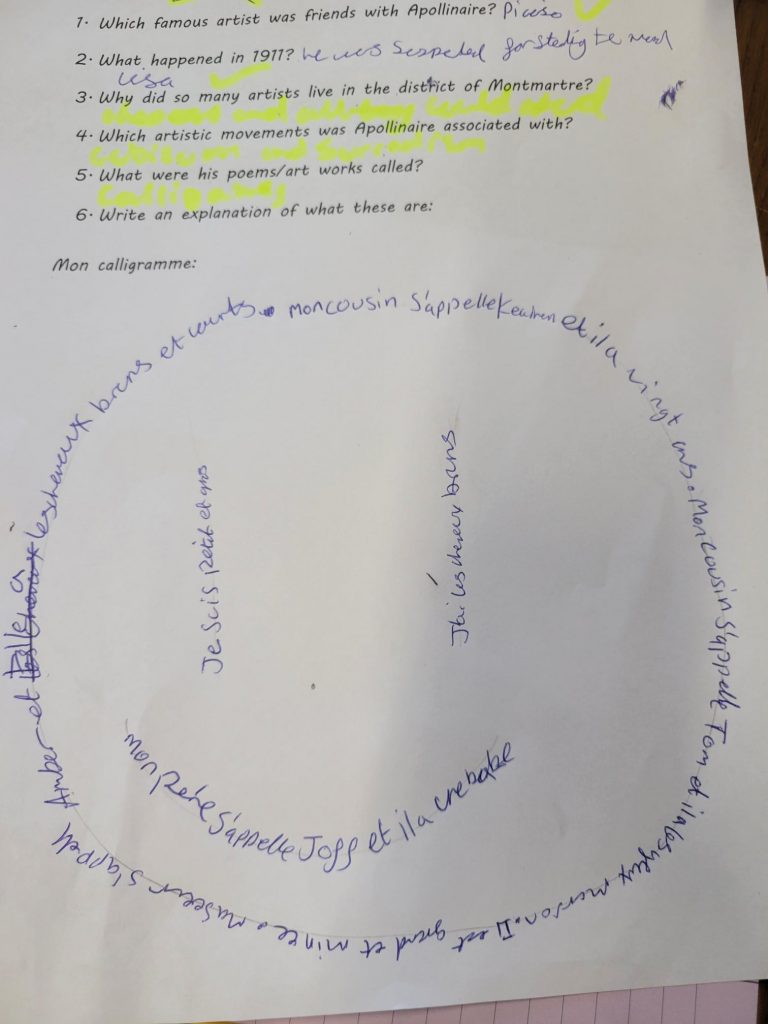 1. Which famous artist was friends with Apollinaire? Picaso
2. What happened in 1911? he was
lisa
3. Why did so many artists live in the district of Montmartre?
4. Which artistic movements was Apollinaire associated with?
5. What were his poems/art works called?
6. Write an explanation of what these are:
Mon calligramme:
mon cousin s'appelle et il a vingt ans. Mon cousin s'appelle Tom et il a les yeux marron. Il est grand et mince. ma seeur s'appell Amber et elle a les cheveux bruns et courts.
Je scis petit et gros
J'ai les cheveux bruns
mon s'appelle Joff et il a